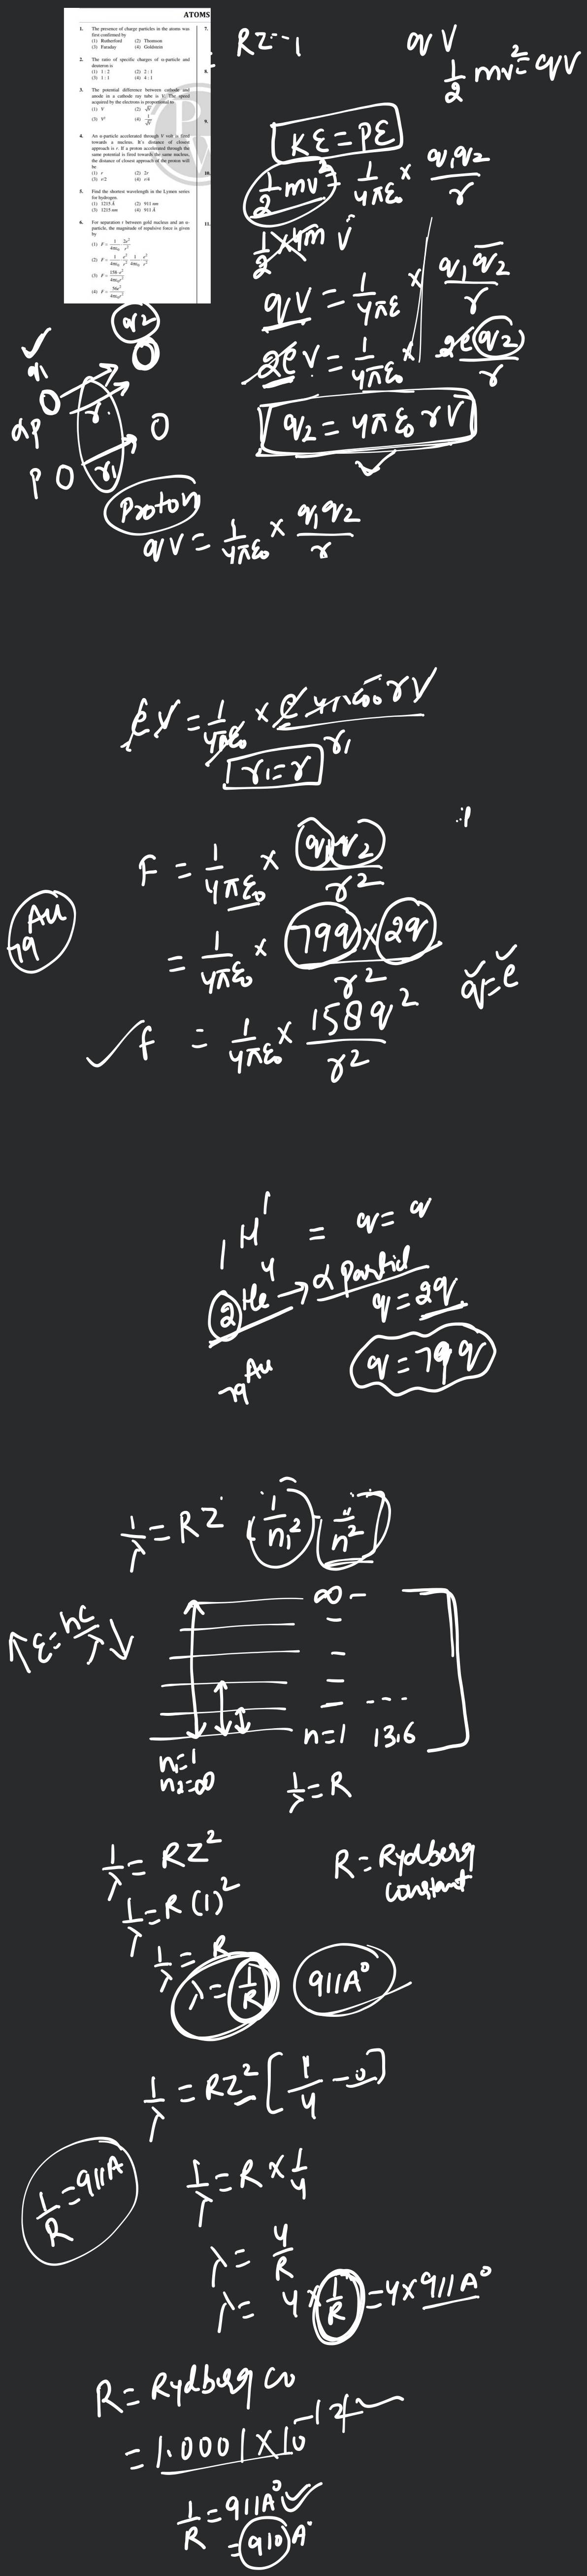 ATOMS
1. The presence of charge particles in the atoms was first confirmed by
(1) Rutherford (2) Thomson
(3) Faraday (4) Goldstein
2. The ratio of specific charges of α-particle and deuteron is
(1) 1 : 2 (2) 2 : 1
(3) 1 : 1 (4) 4 : 1
3. The potential difference between cathode and anode in a cathode ray tube is V. The speed acquired by the electrons is proportional to
(1) V (2) √V
(3) V² (4) 1/√V
4. An α-particle accelerated through V volt is fired towards a nucleus. It's distance of closest approach is r. If a proton accelerated through the same potential is fired towards the same nucleus, the distance of closest approach of the proton will be
(1) r (2) 2r
(3) r/2 (4) r/4
5. Find the shortest wavelength in the Lymen series for hydrogen.
(1) 1215 Å (2) 911 nm
(3) 1215 nm (4) 911 Å
6. For separation r between gold nucleus and an α-particle, the magnitude of repulsive force is given by
(3) F = 158 e²/4πε₀r²
7.
8.
9.
10.
11.
qV
1/2 mv² = qV
KE = PE
1/2 mv² = 1/4πε₀ × q₁q₂/r
qV = 1/4πε × q₁q₂/r
2eV = 1/4πε₀ × 2e(q₂)/r
q₂ = 4πε₀ r V
q₂
q₁
αp
r
p
r₁
Proton
qV = 1/4πε₀ × q₁q₂/r
eV = 1/4πε₀ × e 4πε₀ r V/r₁
r₁ = r
F = 1/4πε₀ × q₁q₂/r²
79 Au
= 1/4πε₀ × 79q × 2q/r²
q = e
F = 1/4πε₀ × 158q²/r²
₁H¹ = q = q
₂He⁴ → α Particl
q = 2q
79 Au
q = 79q
↑E = hc/λ↓
∞
n=1 13.6
n₁=1
n₂=∞
1/λ = R
1/λ = RZ²
R = Rydberg constant
1/λ = R(1)²
1/λ = R
λ = 1/R
911A°
1/λ = RZ² [1/4 - 0]
1/R = 911A
1/λ = R × 1/4
λ = 4/R
λ = 4 × 1/R = 4 × 911A°
R = Rydberg co
1/R = 911A°
= 910A°